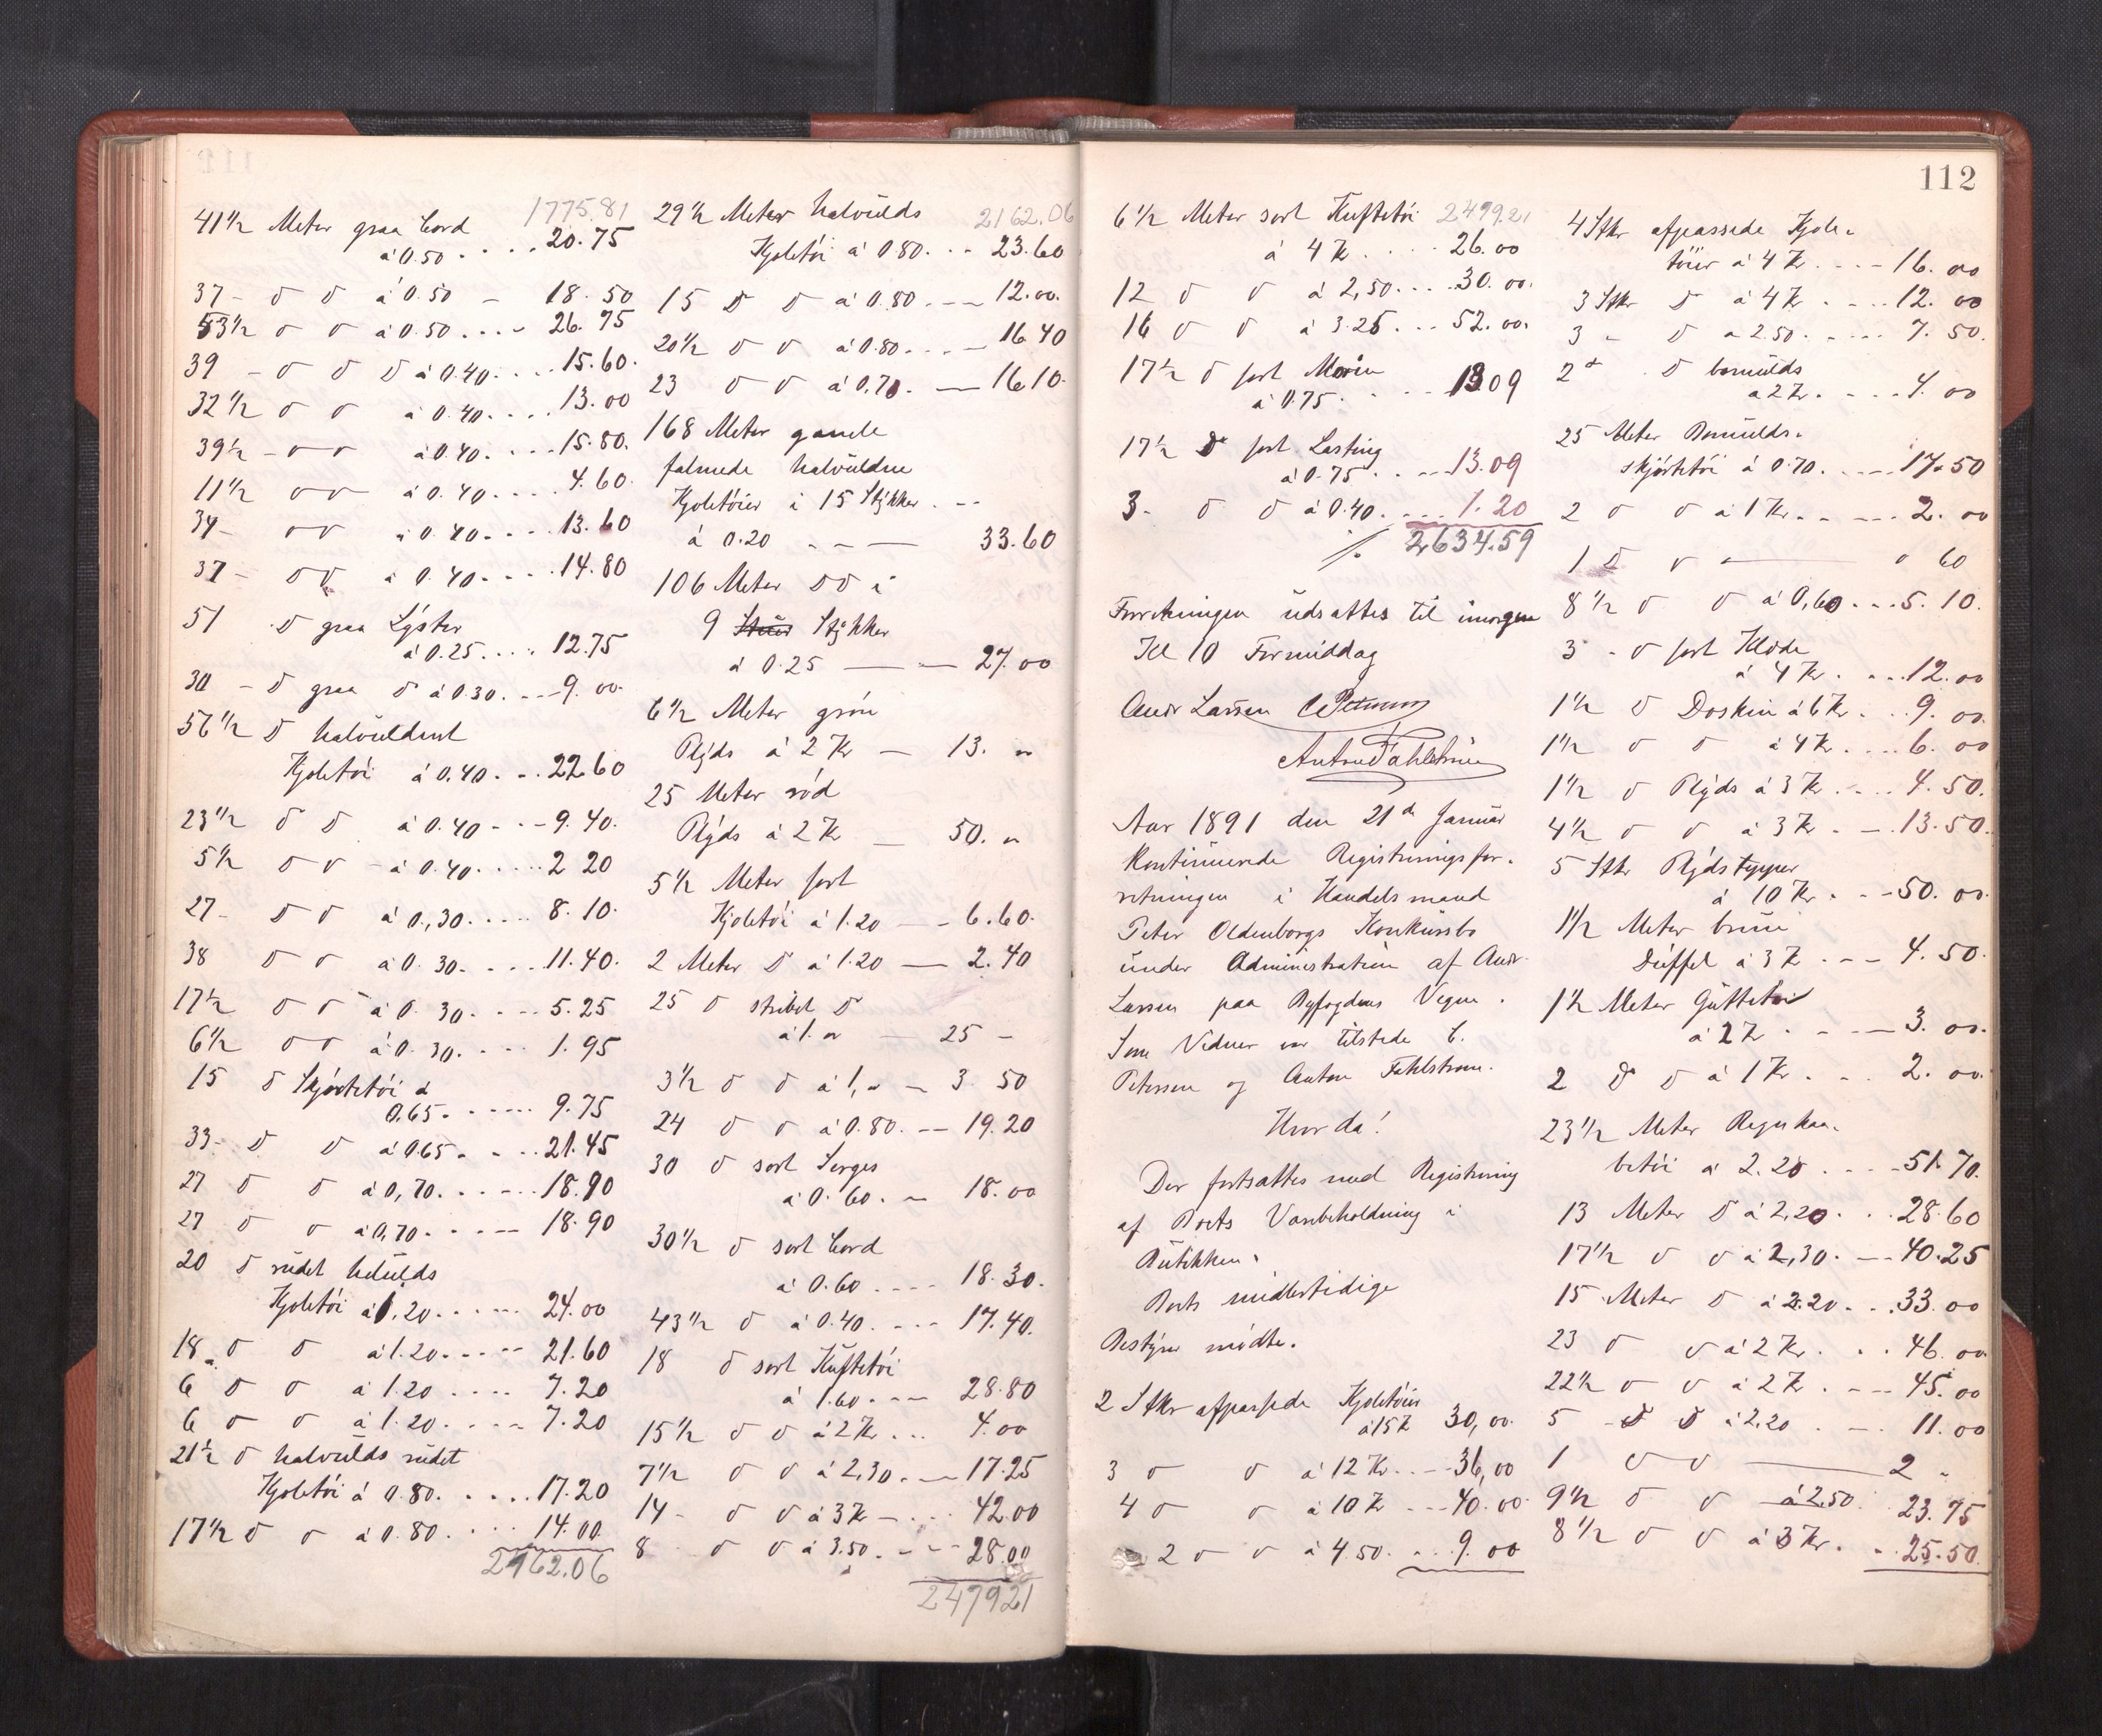 41½ Meter graa Cord 1775.81
à 0.50 .... 20.75
37 - d d à 0.50 - 18.50
53½ d d à 0.50 .... 26.75
39 - d d d à 0.40 .... 15.60.
32½ d d à 0.40 .... 13.00
39½ - d d à 0.40 .... 15.80.
11½ d d à 0.40 .... 4.60.
34 - d d à 0.40 .... 13.60
37 - d d à 0.40 .... 14.80
51 d graa Lyster
à 0.25 .... 12.75
30 - d graa d à 0.30 .... 9.00.
56½ d halvuldent
Kjoletöi à 0.40 ... 22.60
23½ d d à 0.40 ... 9.40.
5½ d d - à 0.40 .... 2 20
27 - d d à 0,30 .... 8.10.
38 d d à 0.30 .... 11.40.
17½ d d à 0.30 .... 5.25
6½ d d à 0.30 .... 1.95
15 d Skjörtetöi à
0.65 .... 9.75
33 - d d à 0.65 .... 21.45
27 d d à 0,70 .... 18.90
27 d d à 0,70 .... 18.90
20 d rudet helulds
Kjoletöi à 1,20 .... 24.00
18 d d à 1.20 .... 21.60
6 d d à 1.20 .... 7.20
6 d d à 1.20 .... 7.20
21½ d halvulds rudet
Kjoletöi à 0.80 .... 17.20
17½ d d à 0.80 .... 14.00
2162.06
29½ Meter halvulds 2162.06
Kjoletöi à 0.80 ... 23.60
15 d d à 0.80 ... 12.00.
20½ d d à 0.80 ... 16 40
23 d d à 0.70 . - 16 10.
168 Meter gamle
falmede halvuldne
Kjoletöier i 15 Stykker . --
à 0.20 - - - 33.60
106 Meter d d i
9 Stykker
à 0.25 - - 27.00
6½ Meter grön
Plyds à 2 Kr - 13. "
25 Meter röd
Plyds à 2 Kr - 50. "
5½ Meter sort
Kjoletöi à 1.20 - - 6.60.
2 Meter d à 1.20 - 2.40
25 d stribet d
à 1. " - 25 -
3½ d d à 1, " - 3 50
24 d d à 0.80. -- 19.20
30 d sort Serges
à 0.60. - 18.00
30½ d sort Cord
à 0.60 .... 18.30.
43½ d à 0.40 .... 17.40.
18 d sort Kuftetöi
à 1.60. -- 28.80
15½ d d à 2 Kr ... 4.00
7½ d d à 2,30 .... 17.25
14 - d d à 3 Kr - ... 42.00
8 d d à 3.50 ... 28.00
2479 21
112
6½ Meter sort Kuftetöi 2479.21
à 4 Kr .... 26.00
12 d d à 2,50 .... 30.00.
16 d d à 3.25 ... 52.00.
17½ d sort
à 0.75 .... 13 09
17½ d sort Lasting
à 0.75 .... 13.09
3 - d d à 0.40 .... 1.20
% 2634.59
Forretningen udsattes til imorgen
Kl 10 Formiddag
Andr Larsen C Petersen
Anton Fahlstrøm
Aar 1891 den 21de Januar
kontinuerede Registreringsfor-
retningen i Handelsmand
Peter Oldenborgs Konkursbo
under Administration af Andr.
Larsen paa Byfogdens Vegne.
Som Vidner var tilstede C.
Petersen og Anton Fahlstrøm.
Hvorda!
Der fortsattes med Registrering
af Boets Varebeholdning i
Butikken.
Boets midlertidige
Bestyrer mödte.
2 Stkr afpassede Kjoletöier
à 15 Kr 30,00.
3 d d à 12 Kr ... 36,00
4 d d à 10 Kr ... 40.00.
2 d d à 4.50 ... 9.00
4 Stkr afpassede Kjole-
töier à 4 Kr .... 16.00
3 Stkr d à 4 Kr .... 12.00
3 - d à 2.50 ..... 7.50.
2 d bomulds
à 2 Kr. .... 4.00
25 Meter Bomulds-
skjörtetöi à 0.70. .... 17.50
2 d d à 1 Kr. .... 2.00
1 d d —— 0 60
8½ d d à 0,60 ... 5.10.
3 - d sort Klæde
à 4 Kr .... 12.00
1½ d Doskin à 6 Kr. ... 9.00.
1½ d d à 4 Kr .... 6.00
1½ d Plyds à 3 Kr .... 4.50.
4½ d d à 3 Kr . -. 13.50.
5 Stkr Plydstæpper
à 10 Kr. .. - 50.00.
1½ Meter brun
Düffel à 3 Kr .-- 4.50.
1½ Meter Guttetöi
à 2 Kr .... 3.00.
2 d d à 1 Kr ... 2.00.
23½ Meter Regnkaa-
betöi à 2.20 .... 51.70.
13 Meter d à 2,20. .. 28.60
17½ d d à 2,30. -- 40.25
15 Meter d à 2.20 ... 33.00
23 d d à 2 Kr. .. 46.00
22½ d d à 2 Kr. -- 45.00
5 - d d à 2.20 . -. 11.00
1 d d —— 2 -
9½ d d à 2.50 23.75
8½ d d à 3 Kr. .. 25.50.